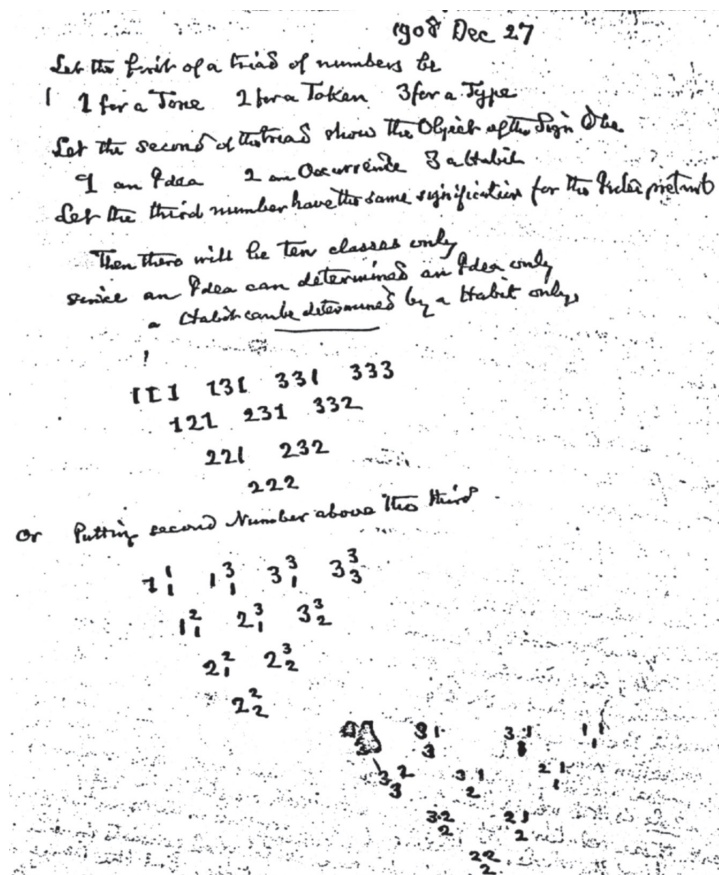 1908 Dec 27
Let the first of a triad of numbers be
1 for a Tone 2 for a Token 3 for a Type
Let the second of the triad show the Object of the Sign
1 an Idea 2 an Occurrence 3 a Habit
Let the third number have the same signification for the Interpretant
Then there will be ten classes only
since an Idea can determined an Idea only
a Habit can be determined by a Habit only
111 131 331 333
121 231 332
221 232
222
Or Putting second Number above the third
1 1 1 3 3 3 3 3
1 1 1 3
1 2 2 3 3 3
1 1 2
2 2 2 3
1 2
2 2
2
3 1 3 1 1 1
3 1
3 2 3 1 2 1
3 2 1
3 2 2 1
2 2
2 2
2